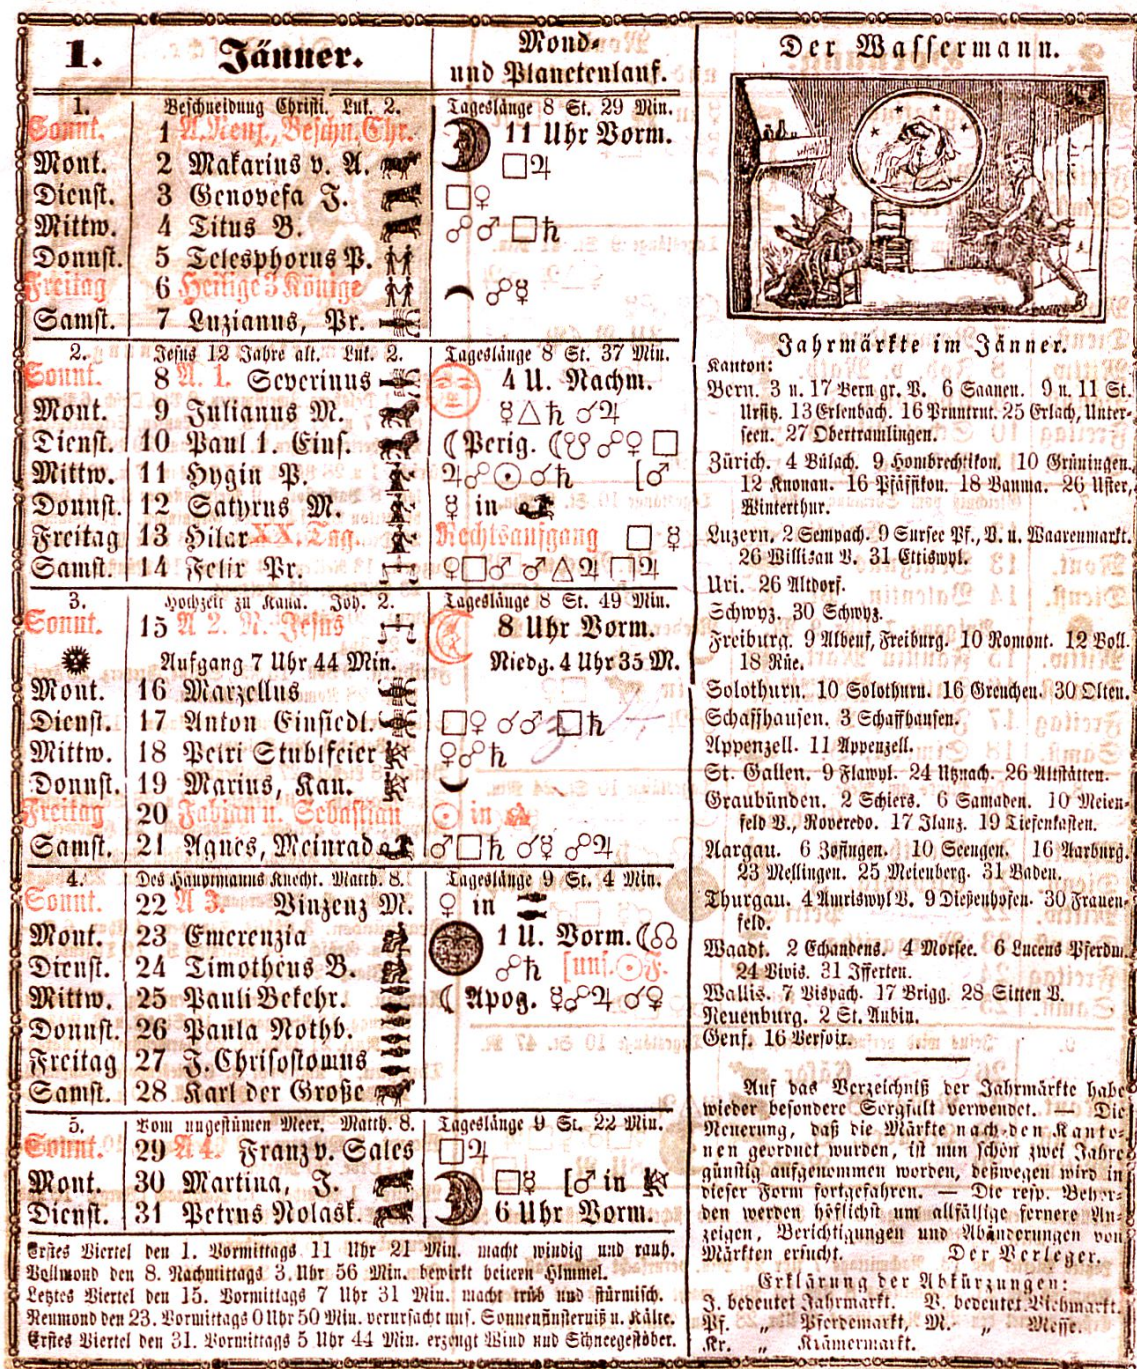 1. Jänner. Mond-
und Planetenlauf.
1. Beschneidung Christi. Luk. 2. Tageslänge 8 St. 29 Min.
Sonnt. 1 A. Neuj., Beschn. Chr. 11 Uhr Vorm.
Mont. 2 Makarius v. A. □♃
Dienst. 3 Genovefa J. □♀
Mittw. 4 Titus B. ☍♂ □♄
Donnst. 5 Telesphorus P.
Freitag 6 Heilige 3 Könige ☍☿
Samst. 7 Luzianus, Pr.
2. Jesus 12 Jahre alt. Luk. 2. Tageslänge 8 St. 37 Min.
Sonnt. 8 A. 1. Severinus 4 U. Nachm.
Mont. 9 Julianus M. ☿△♄ ☌♃
Dienst. 10 Paul 1. Eins. ☾Perig. ☾☋ ☍♀ □
Mittw. 11 Hygin P. ♃☍☉☌♄ [♂
Donnst. 12 Satyrus M. ☿ in
Freitag 13 Hilar XX. Tag. Rechtsaufgang □ ☿
Samst. 14 Felix Pr. ♀□♂ ♂△♃ □♃
3. Hochzeit zu Kana. Joh. 2. Tageslänge 8 St. 49 Min.
Sonnt. 15 A 2. N. Jesus 8 Uhr Vorm.
Aufgang 7 Uhr 44 Min. Niedg. 4 Uhr 35 M.
Mont. 16 Marzellus
Dienst. 17 Anton Einsiedl. □♀ ☌♂ □♄
Mittw. 18 Petri Stuhlfeier ♀☍♄
Donnst. 19 Marius, Kan.
Freitag 20 Fabian u. Sebastian ☉ in
Samst. 21 Agnes, Meinrad ♂□♄ ☌☿ ☍♃
4. Des Hauptmanns Knecht. Matth. 8. Tageslänge 9 St. 4 Min.
Sonnt. 22 A 3. Vinzenz M. ♀ in
Mont. 23 Emerenzia 1 U. Vorm. ☾☊
Dienst. 24 Timotheus B. ☍♄ [uns. ☉ F.
Mittw. 25 Pauli Bekehr. ☾ Apog. ☿☍♃ ☌♀
Donnst. 26 Paula Nothb.
Freitag 27 J. Chrisostomus
Samst. 28 Karl der Große
5. Vom ungestümen Meer. Matth. 8. Tageslänge 9 St. 22 Min.
Sonnt. 29 A 4. Franz v. Sales □♃
Mont. 30 Martina, J. □☿ [♂ in
Dienst. 31 Petrus Nolask. 6 Uhr Vorm.
Erstes Viertel den 1. Vormittags 11 Uhr 21 Min. macht windig und rauh.
Vollmond den 8. Nachmittags 3 Uhr 56 Min. bewirkt heitern Himmel.
Letztes Viertel den 15. Vormittags 7 Uhr 31 Min. macht trüb und stürmisch.
Neumond den 23. Vormittags 0 Uhr 50 Min. verursacht uns. Sonnenfinsterniß u. Kälte.
Erstes Viertel den 31. Vormittags 5 Uhr 44 Min. erzeugt Wind und Schneegestöber.
Der Wassermann.
Jahrmärkte im Jänner.
Kanton:
Bern. 3 u. 17 Bern gr. V. 6 Saanen. 9 u. 11 St.
Ursitz. 13 Erlenbach. 16 Pruntrut. 25 Erlach, Unter-
seen. 27 Obertramlingen.
Zürich. 4 Bülach. 9 Hombrechtikon. 10 Grüningen.
12 Knonau. 16 Pfäffikon. 18 Bauma. 26 Uster,
Winterthur.
Luzern. 2 Sempach. 9 Sursee Pf., V. u. Waarenmarkt.
26 Willisau V. 31 Ettiswyl.
Uri. 26 Altdorf.
Schwyz. 30 Schwyz.
Freiburg. 9 Albeuf, Freiburg. 10 Romont. 12 Voll.
18 Rüe.
Solothurn. 10 Solothurn. 16 Grenchen. 30 Olten.
Schaffhausen. 3 Schaffhausen.
Appenzell. 11 Appenzell.
St. Gallen. 9 Flawyl. 24 Utznach. 26 Altstätten.
Graubünden. 2 Schiers. 6 Samaden. 10 Meien-
feld V., Roveredo. 17 Ilanz. 19 Tiefenkasten.
Aargau. 6 Zofingen. 10 Seengen. 16 Aarburg.
23 Mellingen. 25 Meienberg. 31 Baden.
Thurgau. 4 Amriswyl V. 9 Dießenhofen. 30 Frauen-
feld.
Waadt. 2 Echandens. 4 Morsee. 6 Lucens Pferdm.
24 Vivis. 31 Ifferten.
Wallis. 7 Vispach. 17 Brigg. 28 Sitten V.
Neuenburg. 2 St. Aubin.
Genf. 16 Versoix.
Auf das Verzeichniß der Jahrmärkte habe
wieder besondere Sorgfalt verwendet. — Die
Neuerung, daß die Märkte nach den Kanto-
nen geordnet wurden, ist nun schon zwei Jahre
günstig aufgenommen worden, deßwegen wird in
dieser Form fortgefahren. — Die resp. Behör-
den werden höflichst um allfällige fernere An-
zeigen, Berichtigungen und Abänderungen von
Märkten ersucht. Der Verleger.
Erklärung der Abkürzungen:
J. bedeutet Jahrmarkt. V. bedeutet Viehmarkt.
Pf. „ Pferdemarkt, M. „ Messe.
Kr. „ Krämermarkt.